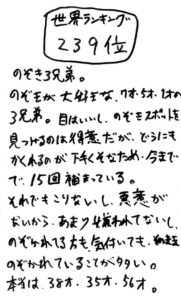 世界ランキング
239位
のぞき3兄弟。
のぞきが大好きな、7才、5才、1才の
3兄弟。目はいいし、のぞきスポットを
見つけるのは得意だが、どうにも
かくれるのが下手くそなため、今まで
で、15回捕まっている。
それでもこりないし、悪意が
ないから、あまり嫌われてないし、
のぞかれる方も、気付いても、
のぞかれていることが多い。
本当は、38才、35才、56才。